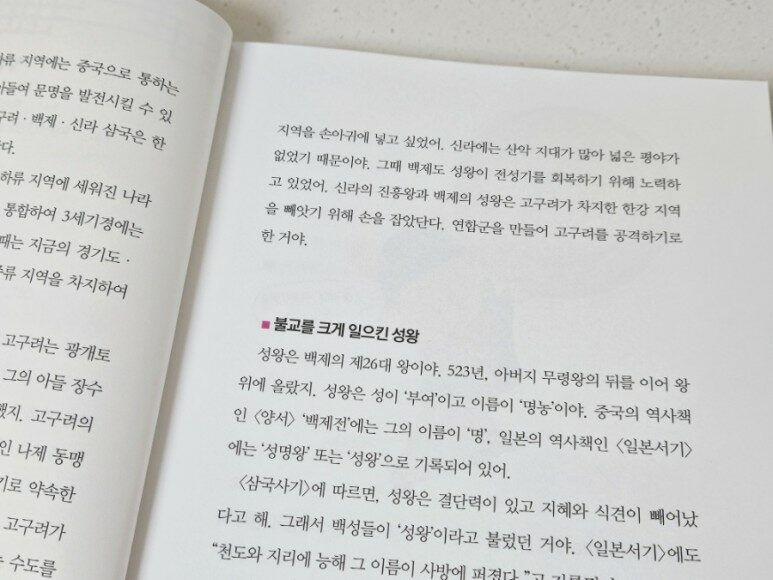 하류 지역에는 중국으로 통하는
아들여 문명을 발전시킬 수 있
구려 · 백제 · 신라 삼국은 한
다.
하류 지역에 세워진 나라
통합하여 3세기경에는
때는 지금의 경기도 ·
류 지역을 차지하여
고구려는 광개토
그의 아들 장수
했지. 고구려의
인 나제 동맹
기로 약속한
고구려가
는 수도를
지역을 손아귀에 넣고 싶었어. 신라에는 산악 지대가 많아 넓은 평야가
없었기 때문이야. 그때 백제도 성왕이 전성기를 회복하기 위해 노력하
고 있었어. 신라의 진흥왕과 백제의 성왕은 고구려가 차지한 한강 지역
을 빼앗기 위해 손을 잡았단다. 연합군을 만들어 고구려를 공격하기로
한 거야.
■ 불교를 크게 일으킨 성왕
성왕은 백제의 제26대 왕이야. 523년, 아버지 무령왕의 뒤를 이어 왕
위에 올랐지. 성왕은 성이 ‘부여’이고 이름이 ‘명농’이야. 중국의 역사책
인 〈양서〉 ‘백제전’에는 그의 이름이 ‘명’, 일본의 역사책인 〈일본서기〉
에는 ‘성명왕’ 또는 ‘성왕’으로 기록되어 있어.
〈삼국사기〉에 따르면, 성왕은 결단력이 있고 지혜와 식견이 빼어났
다고 해. 그래서 백성들이 ‘성왕’이라고 불렀던 거야. 〈일본서기〉에도
“천도와 지리에 능해 그 이름이 사방에 퍼졌다.”고